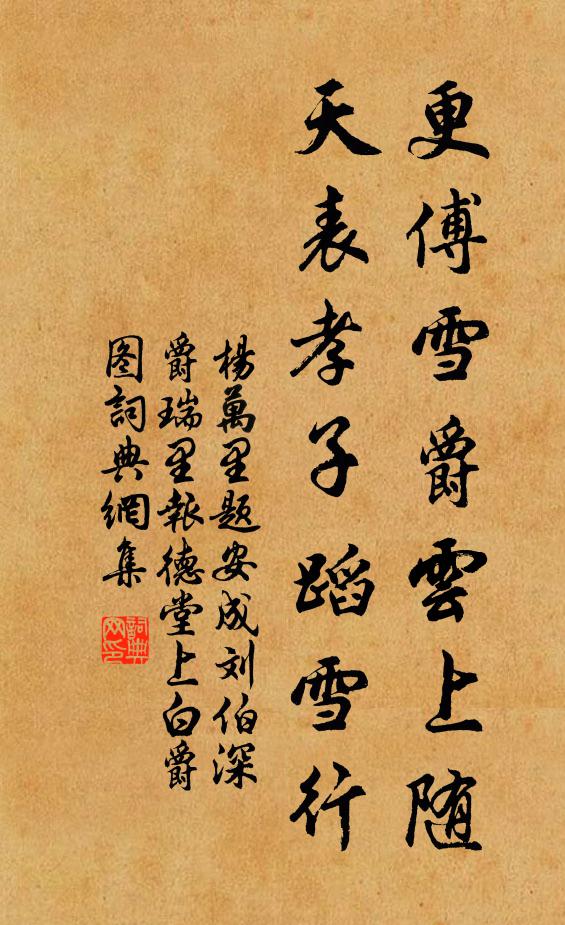 更傅雪爵雲上随
天表孝子蹈雪行
楊萬里题安成刘伯深
爵瑞里報德堂上白爵
图詞典網集
詞典网印